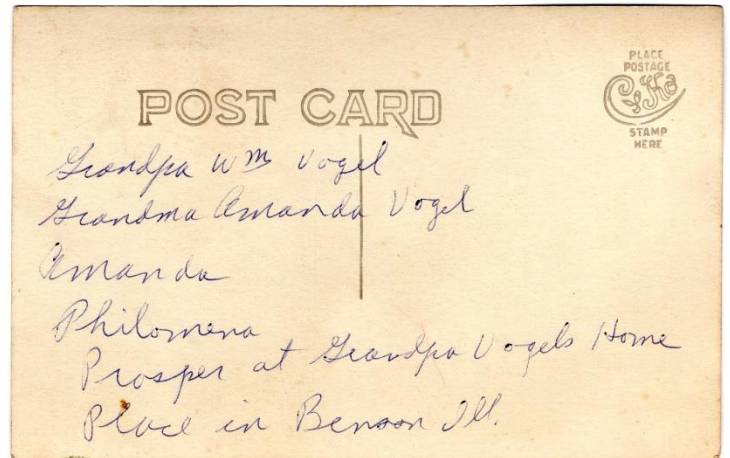 PLACE
POSTAGE
CYKO
STAMP
HERE
POST CARD
Grandpa Wm Vogel
Grandma Amanda Vogel
Amanda
Philomena
Prosper at Grandpa Vogels Home
Place in Benson Ill.